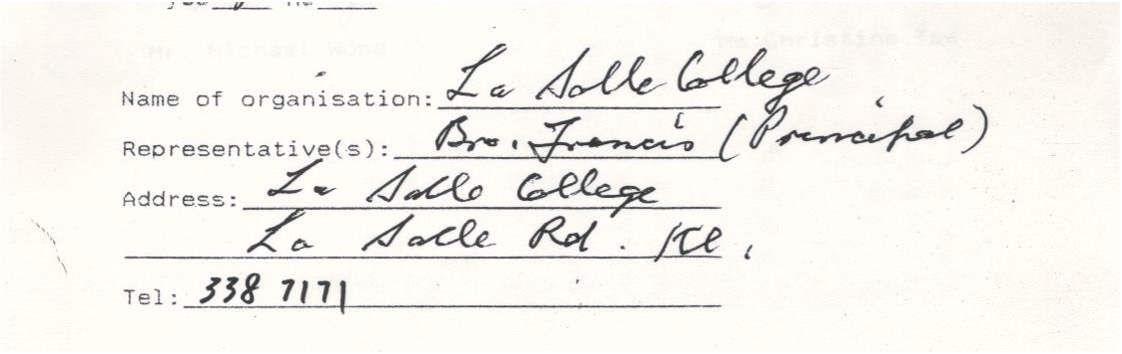 Name of organisation: La Salle College
Representative(s): Bro. Francis (Principal)
Address: La Salle College
La Salle Rd. Kl,
Tel: 338 7171